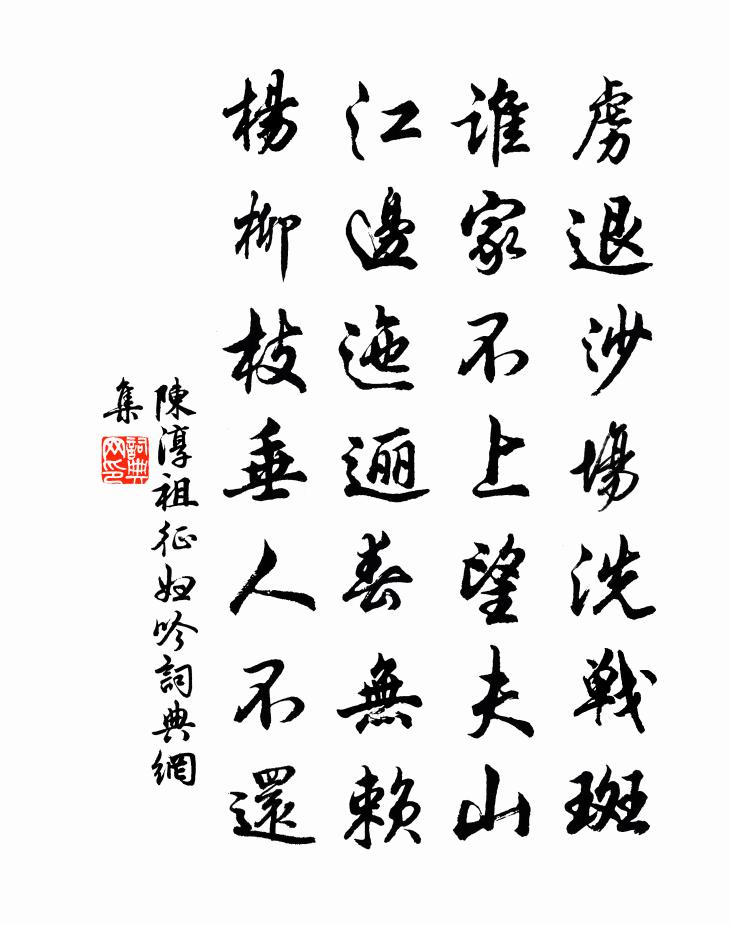 虜退沙場洗戦斑
誰家不上望夫山
江邊迤逦春無賴
楊柳枝垂人不還
陳淳祖征妇吟詞典網
集
詞典
网印